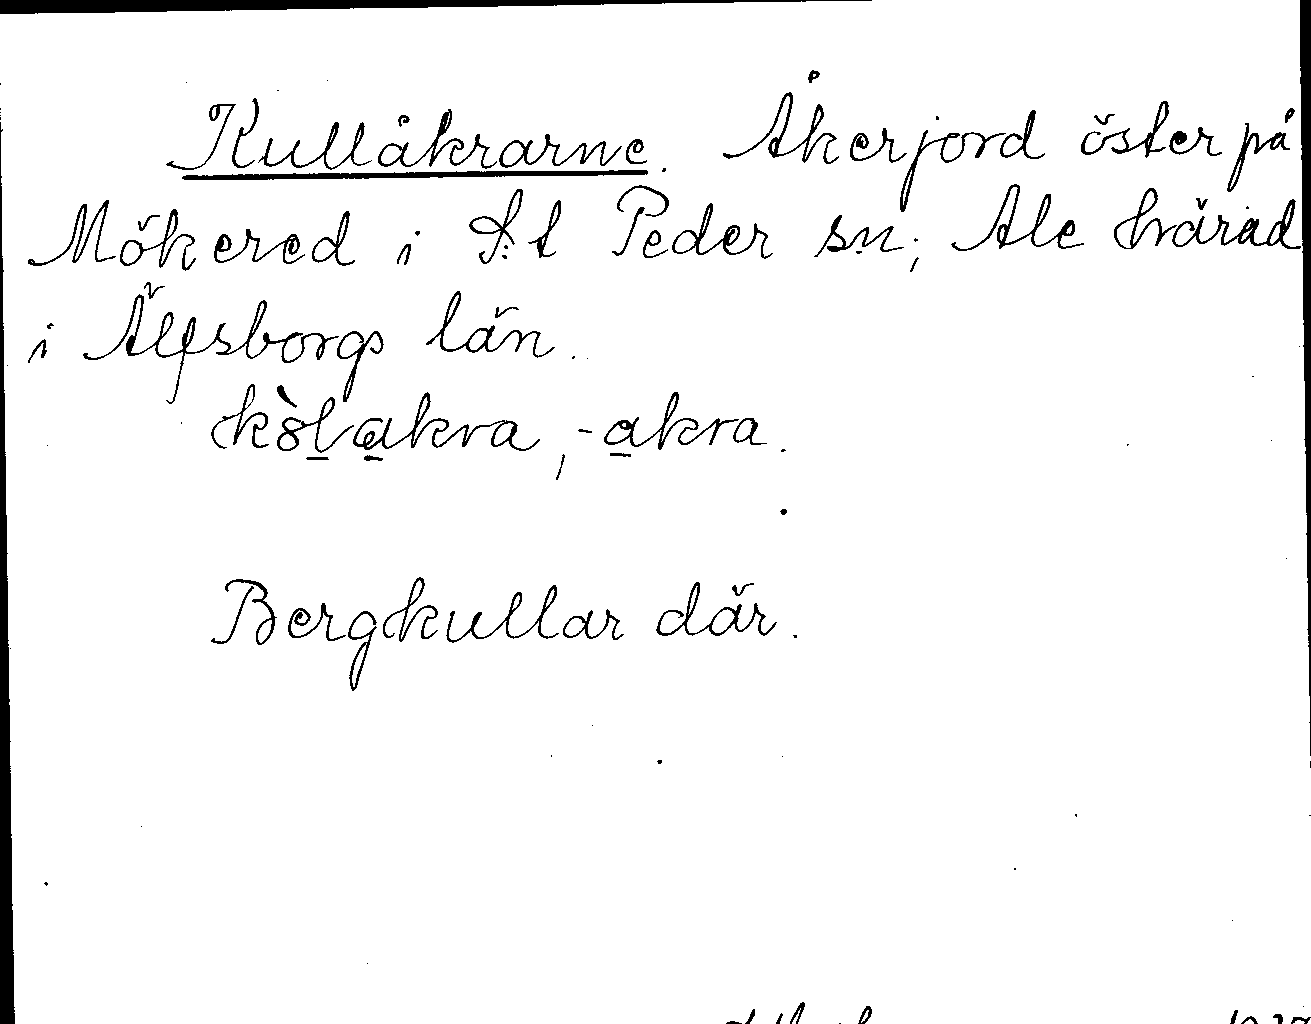 Kullåkrarne. Åkerjord öster på
Mökered i S:t Peder sn, Ale härad
i Älfsborgs län.
kòlakra, -akra.
Bergkullar där.